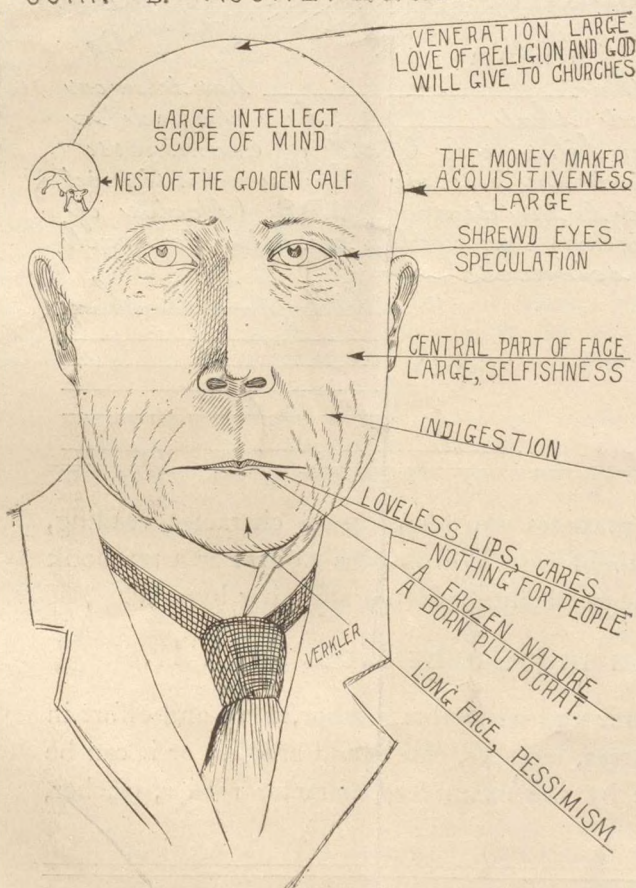 JOHN
VENERATION LARGE
LOVE OF RELIGION AND GOD
WILL GIVE TO CHURCHES
LARGE INTELLECT
SCOPE OF MIND
NEST OF THE GOLDEN CALF
THE MONEY MAKER
ACQUISITIVENESS
LARGE
SHREWD EYES
SPECULATION
CENTRAL PART OF FACE
LARGE, SELFISHNESS
INDIGESTION
LOVELESS LIPS, CARES
NOTHING FOR PEOPLE
A FROZEN NATURE
A BORN PLUTOCRAT.
VERKLER
LONG FACE, PESSIMISM